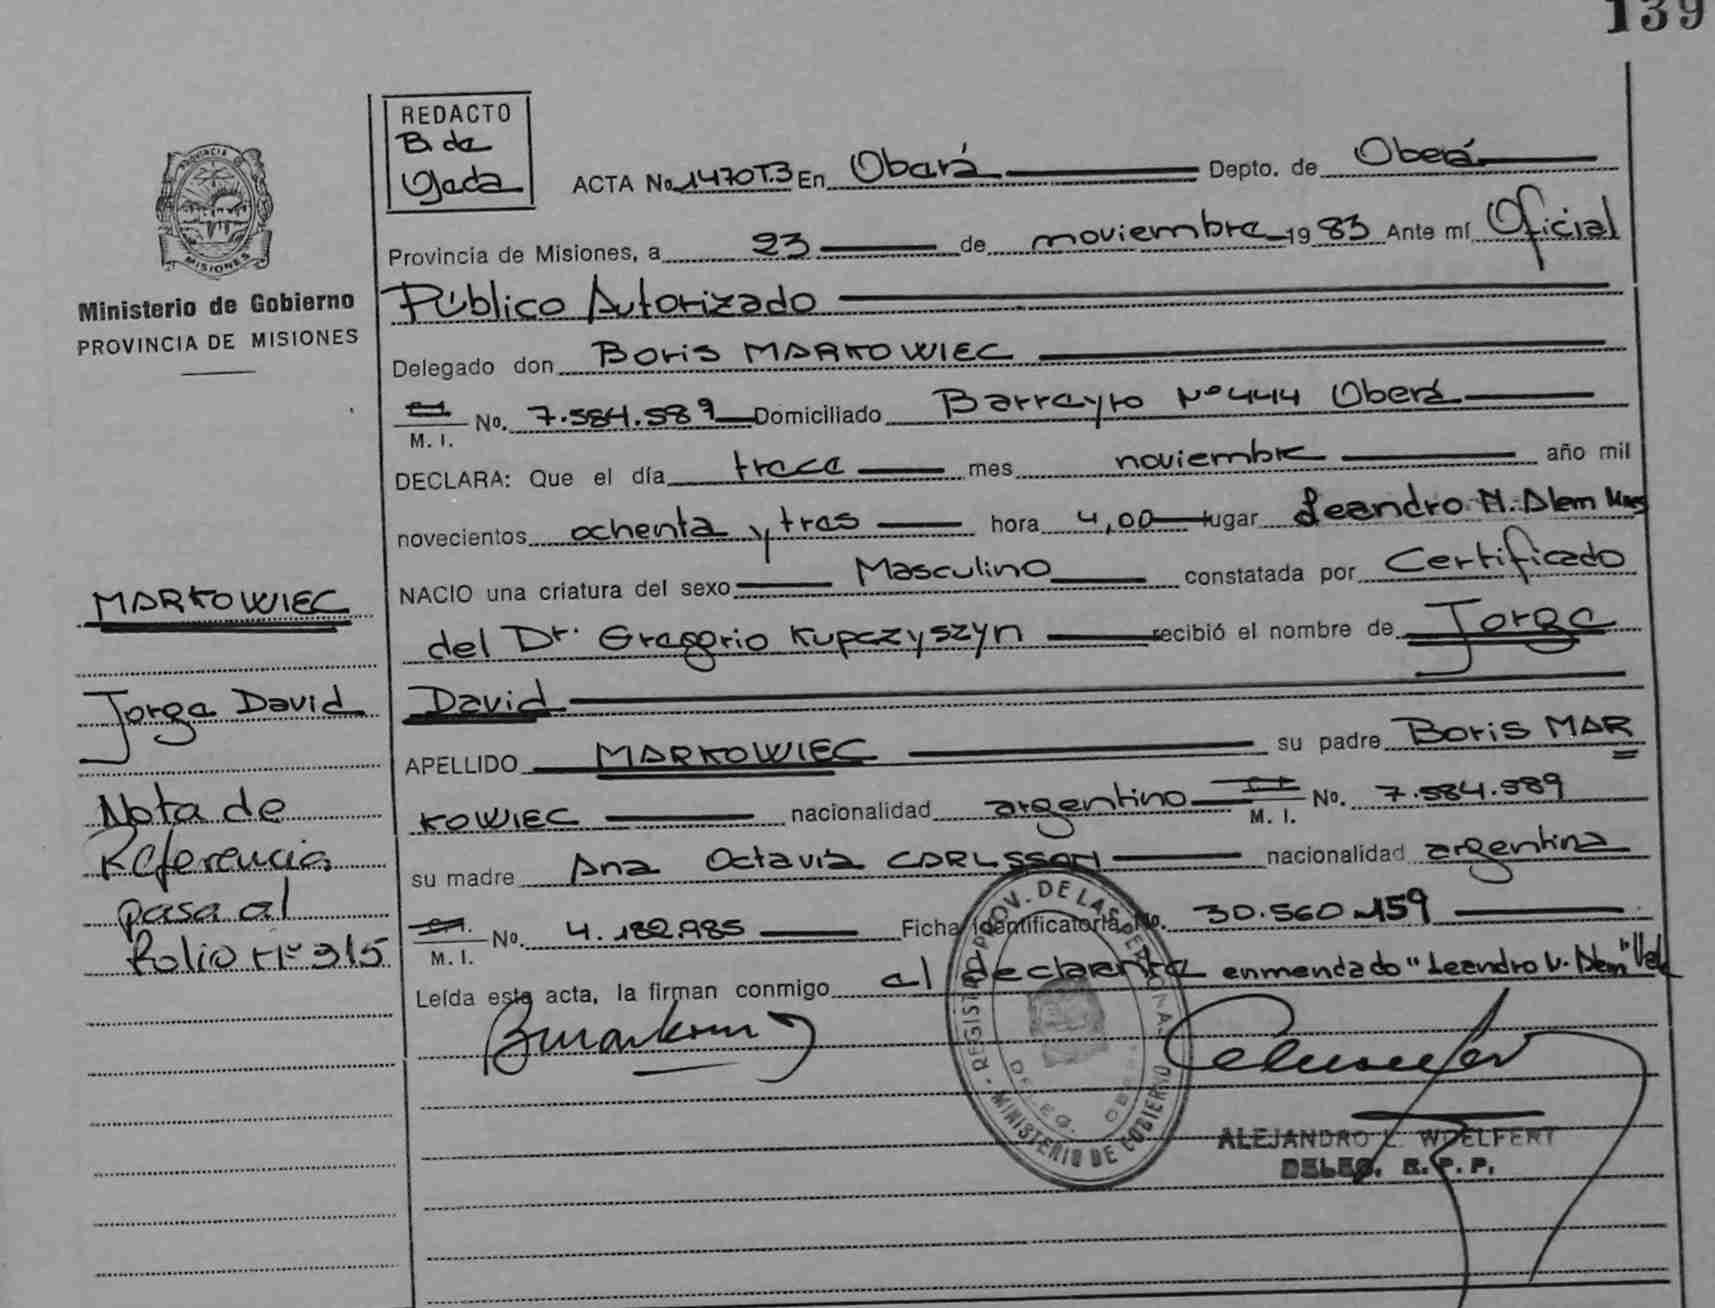 139
REDACTO
B. de
Ojeda
ACTA No. 1470 T.3 En Oberá Depto. de Oberá
PROVINCIA DE
MISIONES
Provincia de Misiones, a 23 de noviembre 19 83 Ante mí Oficial
Público Autorizado
Ministerio de Gobierno
PROVINCIA DE MISIONES
Delegado don Boris MARKOWIEC
M. I. No. 7.584.589 Domiciliado Barreyro Nº 444 Oberá
DECLARA: Que el día trece mes noviembre año mil
novecientos ochenta y tres hora 4,00 lugar Leandro N. Alem
NACIO una criatura del sexo Masculino constatada por Certificado
del Dr. Gregorio Kupczyszyn recibió el nombre de Jorge
David
APELLIDO MARKOWIEC su padre Boris MAR
KOWIEC nacionalidad argentino M. I. No. 7.584.589
su madre Ana Octavia CARLSSON nacionalidad argentina
M. I. No. 4.182.985 Ficha Identificatoria No. 30.560.159
Leída esta acta, la firman conmigo el declarante enmendado "Leandro N. Alem"
MARKOWIEC
Jorge David
Nota de
Referencia
pasa al
folio Nº 315
REGIST. PROV. DE LAS PERSONAS
DELEG. OBERA
MINISTERIO DE GOBIERNO
ALEJANDRO L. WOELFERT
DELEG. R. P. P.